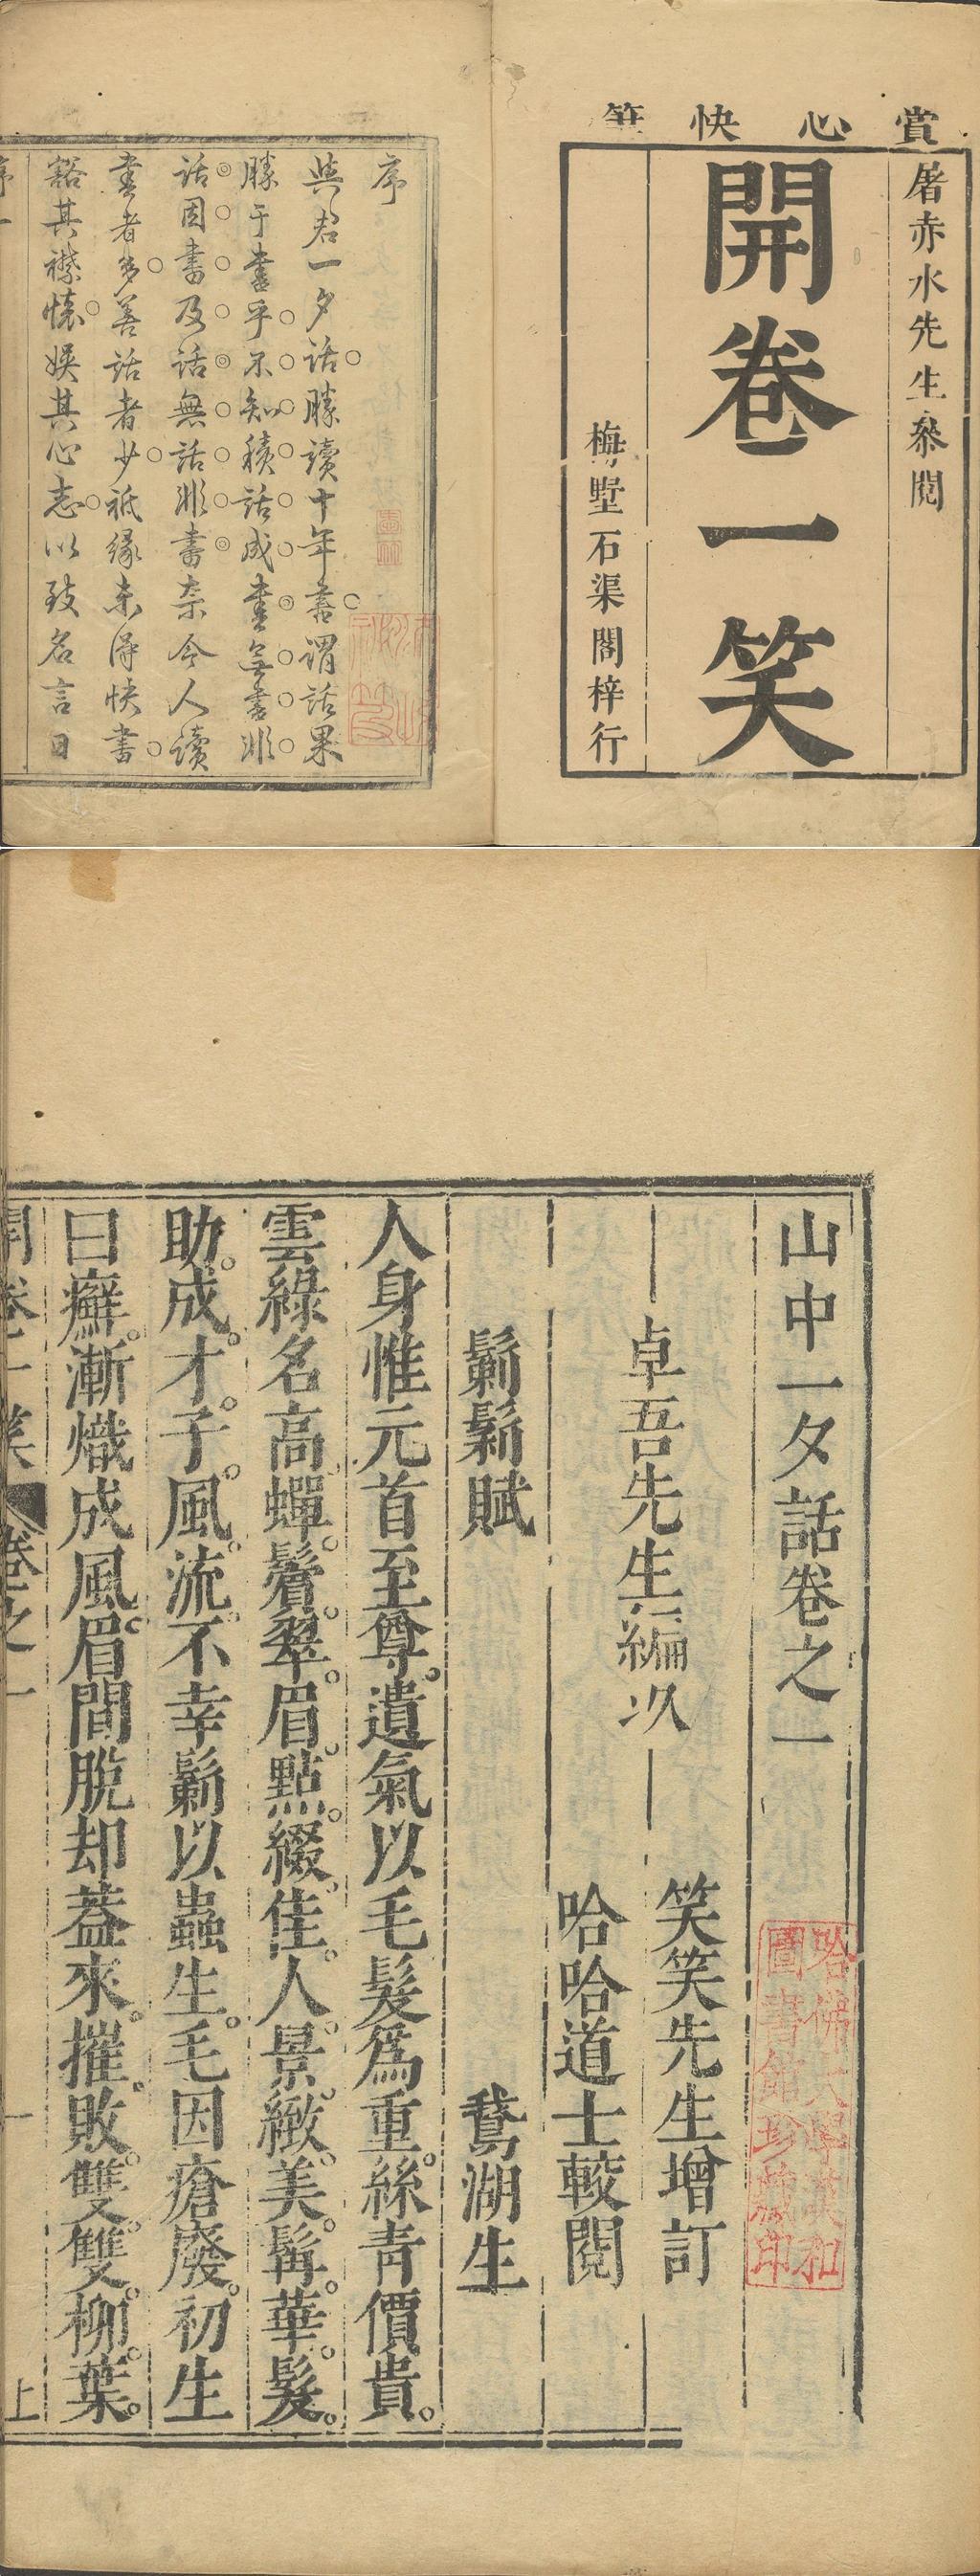 賞心快筆
屠赤水先生叅閱
開卷一笑
梅墅石渠閣梓行
序
與君一夕話勝讀十年書謂話果
勝于書乎不知積話成書無書非
話因書及話無話非書奈今人讀
書者多善話者少祗緣未得快書
豁其襟懷娛其心志以致名言日
序一
山中一夕話卷之一
卓吾先生編次
笑笑先生增訂
哈哈道士較閱
鬎鬁賦
鵞湖生
人身惟元首至尊遺氣以毛髮爲重絲青價貴
雲綠名高蟬鬢翠眉點綴佳人景緻美髯華髮
助成才子風流不幸鬎以蟲生毛因瘡廢初生
曰癬漸熾成風眉間脫却葢來摧敗雙雙柳葉
開卷一笑 卷之一 一 上
哈佛大學漢和
圖書館珍藏印